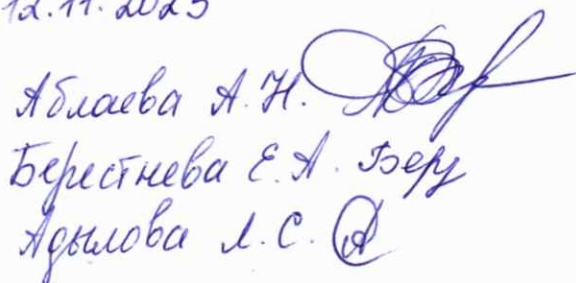 12.11.2023
Аблаева А.Н.
Берестнева Е.А. Бер
Адылова Л.С.